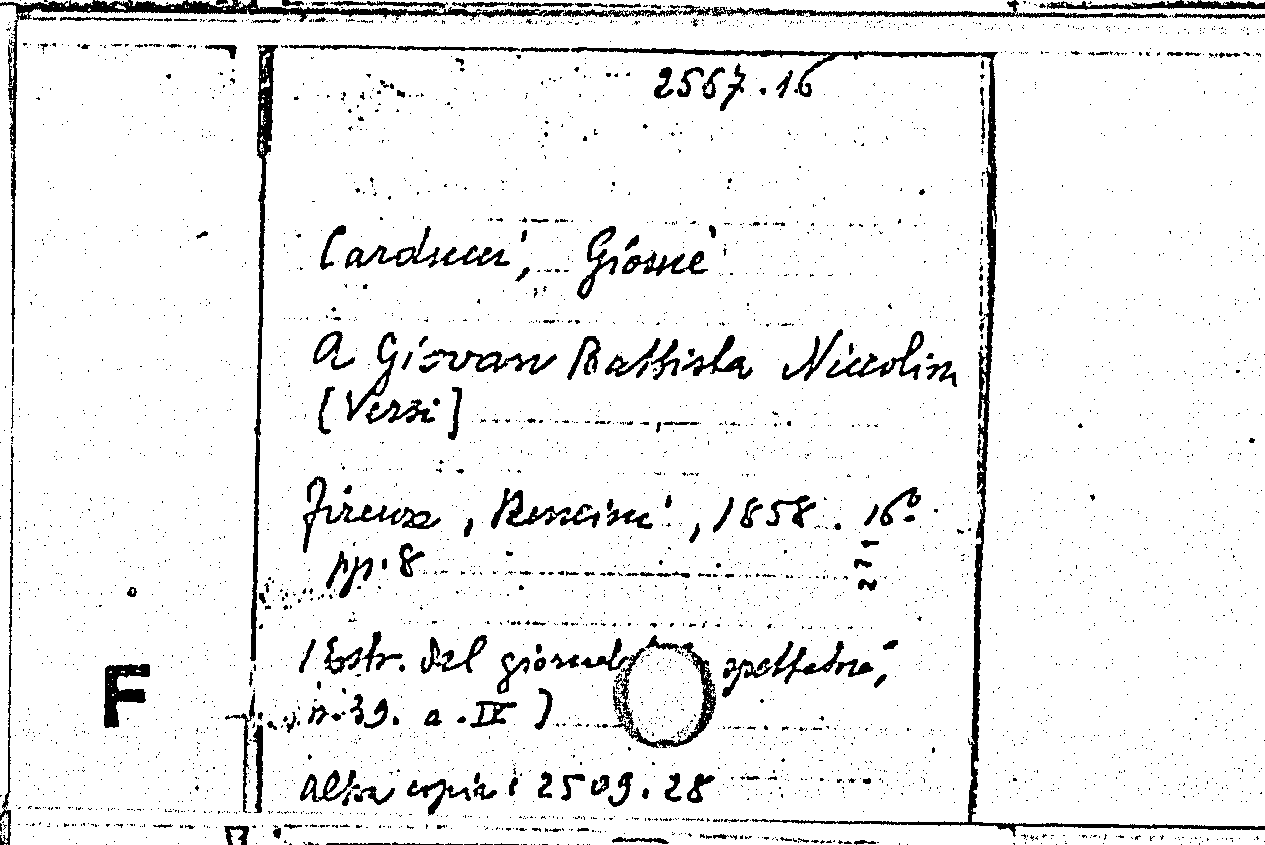 2567.16
Carducci, Giosuè
A Giovan Battista Niccolini
[Versi]
Firenze, Renucini, 1858. 16º
pp. 8
(Estr. dal giornale spettatore,"
n. 39. a. IV)
F
altra copia: 2509.28